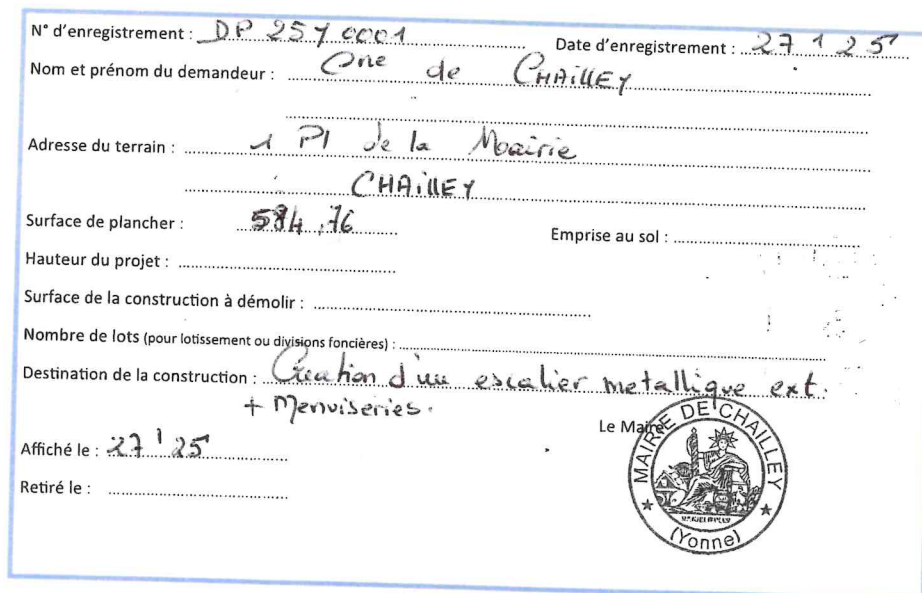 N° d'enregistrement : DP 25Y0001 Date d'enregistrement : 27 1 25
Nom et prénom du demandeur : Cne de CHAILLEY
Adresse du terrain : 1 Pl de la Mairie
CHAILLEY
Surface de plancher : 584,76 Emprise au sol :
Hauteur du projet :
Surface de la construction à démolir :
Nombre de lots (pour lotissement ou divisions foncières) :
Destination de la construction : Création d'un escalier metallique ext.
+ Menuiseries.
Le Maire
Affiché le : 27 1 25
Retiré le :
MAIRIE DE CHAILLEY
(Yonne)